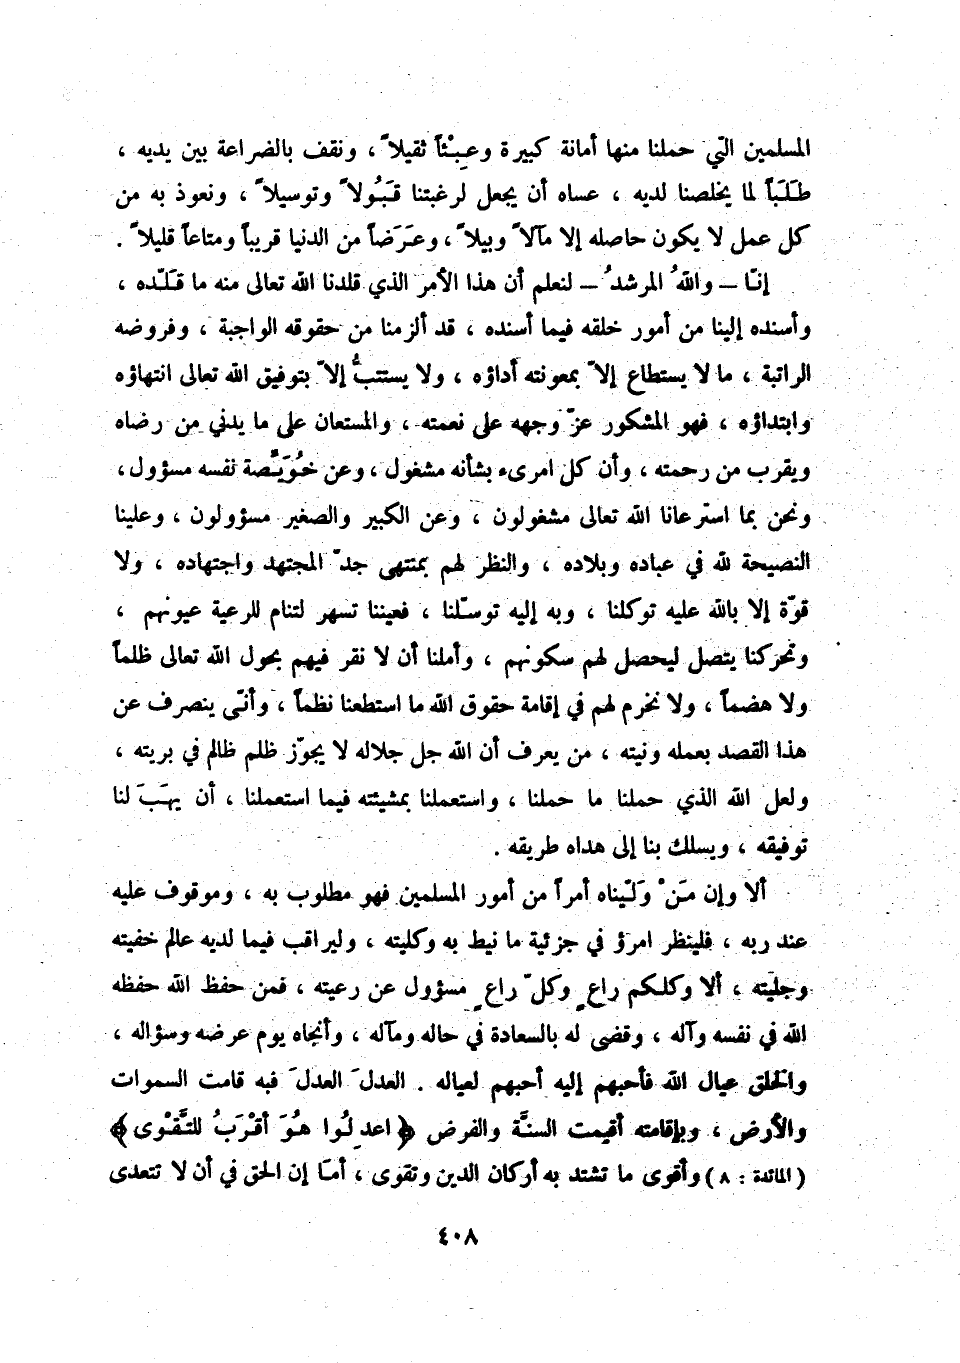 المسلمين التي حملنا منها أمانة كبيرة وعِبْئاً ثقيلاً ، ونقف بالضراعة بين يديه ،
طَلَبَاً لما يخلصنا لديه ، عساه أن يجعل لرغبتنا قَبُولاً وتوسيلاً ، ونعوذ به من
كل عمل لا يكون حاصله إلا مآلاً وبيلاً ، وعَرَضاً من الدنيا قريباً ومتاعاً قليلاً .
إنّا – واللهُ المرشدُ – لنعلم أن هذا الأمر الذي قلدنا الله تعالى منه ما قَلّده ،
وأسنده إلينا من أمور خلقه فيما أسنده ، قد ألزمنا من حقوقه الواجبة ، وفروضه
الراتبة ، ما لا يستطاع إلاّ بمعونته أداؤه ، ولا يستتبُّ إلاّ بتوفيق الله تعالى انتهاؤه
وابتداؤه ، فهو المشكور عزّ وجهه على نعمته ، والمستعان على ما يدني من رضاه
ويقرب من رحمته ، وأن كل امرىء بشأنه مشغول ، وعن خُوَيَّصة نفسه مسؤول ،
ونحن بما استرعانا الله تعالى مشغولون ، وعن الكبير والصغير مسؤولون ، وعلينا
النصيحة لله في عباده وبلاده ، والنظر لهم بمنتهى جدّ المجتهد واجتهاده ، ولا
قوّة إلا بالله عليه توكلنا ، وبه إليه توسّلنا ، فعيننا تسهر لتنام للرعية عيونهم ،
وتحركنا يتصل ليحصل لهم سكونهم ، وأملنا أن لا نقر فيهم بحول الله تعالى ظلماً
ولا هضماً ، ولا نخرم لهم في إقامة حقوق الله ما استطعنا نظماً ، وأنّى ينصرف عن
هذا القصد بعمله ونيته ، من يعرف أن الله جل جلاله لا يجوّز ظلم ظالم في بريته ،
ولعل الله الذي حملنا ما حملنا ، واستعملنا بمشيئته فيما استعملنا ، أن يهَبَ لنا
توفيقه ، ويسلك بنا إلى هداه طريقه .
ألا وإن مَنْ وَلّيناه أمراً من أمور المسلمين فهو مطلوب به ، وموقوف عليه
عند ربه ، فلينظر امرؤ في جزئية ما نيط به وكليته ، وليراقب فيما لديه عالم خفيته
وجليّته ، ألا وكلكم راعٍ وكلّ راعٍ مسؤول عن رعيته ، فمن حفظ الله حفظه
الله في نفسه وآله ، وقضى له بالسعادة في حاله ومآله ، وأنجاه يوم عرضه وسؤاله ،
والخلق عيال الله فأحبهم إليه أحبهم لعياله . العدلَ العدلَ فبه قامت السموات
والأرض ، وبإقامته أقيمت السنَّة والفرض ﴿ اعدِلُوا هُوَ أقْرَبُ للتَّقْوى ﴾
( المائدة : ٨ ) وأقوى ما تشتد به أركان الدين وتقوى ، أمّا إن الحق في أن لا تتعدى
٤٠٨